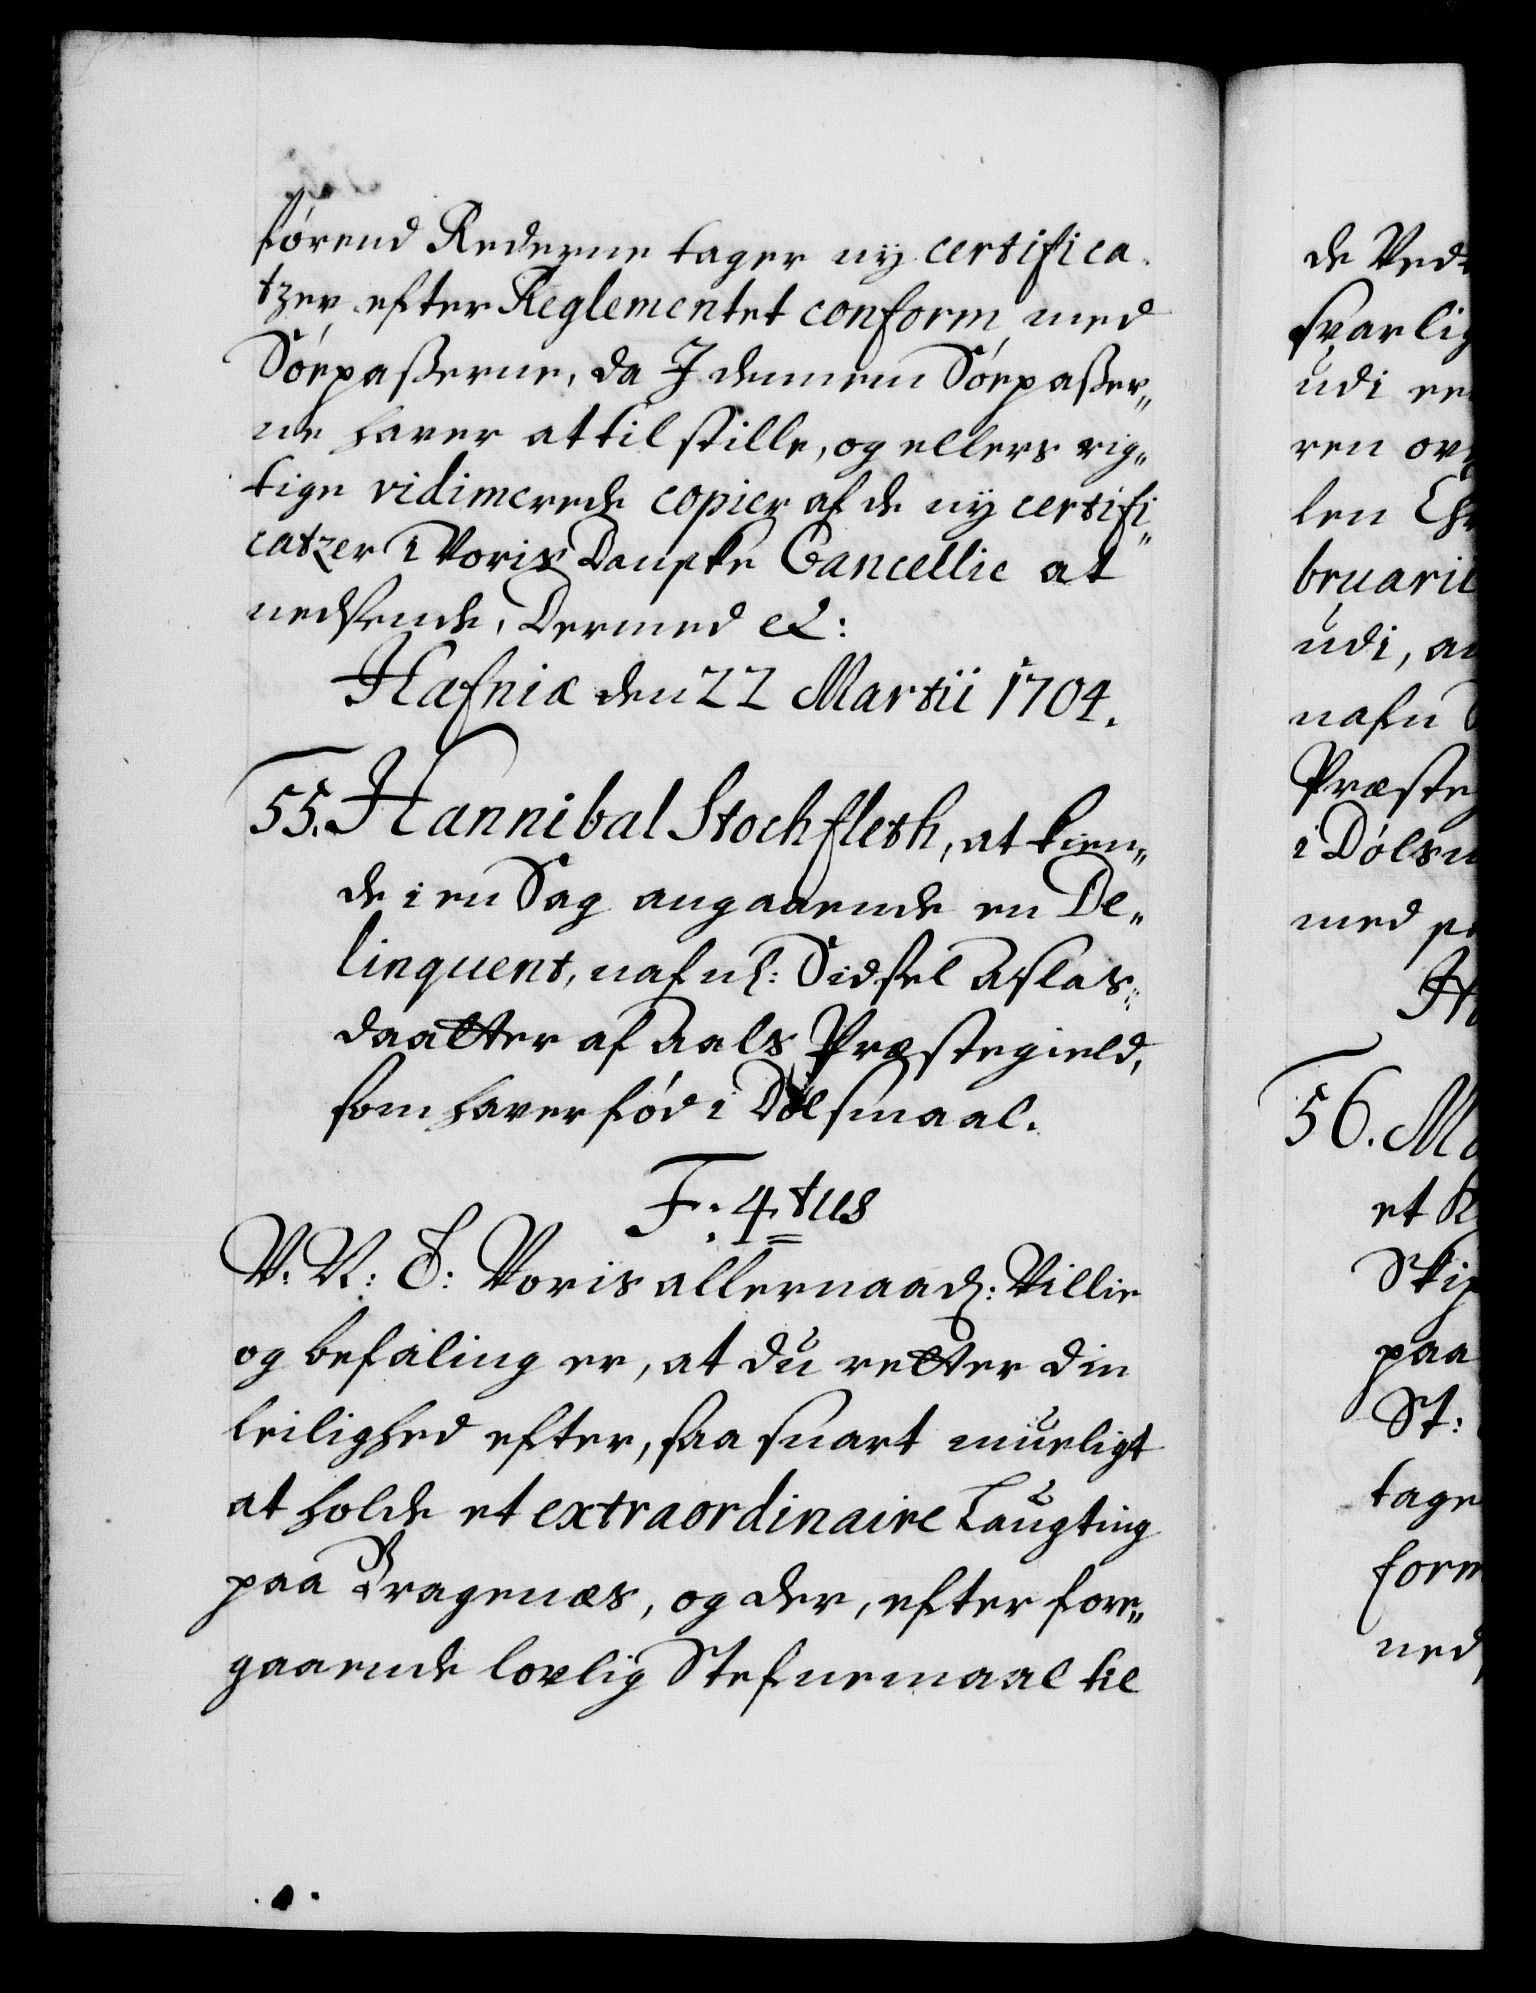 förend Rederne tager ny certifica-
tzer efter Reglementet conform med
Söepaßerne, da I dennem Söepaßer„
ne haver at tilstille, og ellers rig„
tige vidimerede copier af de ny certifi„
catzer i Voris Danske Cancellie at
nedsende, Dermed &:
Hafniæ den 22 Martii 1704.
55. Hannibal Stochfleth, at kien„
de i en Sag angaaende en De„
linquent, nafnl: Sidsel Aslas„
daatter af Aals Præstegield,
som haver fød i Dølsmaal.
F: 4tus
V. V: G: Voris allernaad: Villie
og befaling er, at du retter din
leilighed efter, saa snart mueligt
at holde et extraordinaire Laugting
paa Bragenæs, og der, efter fore„
gaaende lovlig Stefnemaal til
de Ved
svarlig
udi
ren
len
bruarii
udi,
nafn
Præste
i Dølsm
med
56.
et
Paa
St:
tage
form
ned